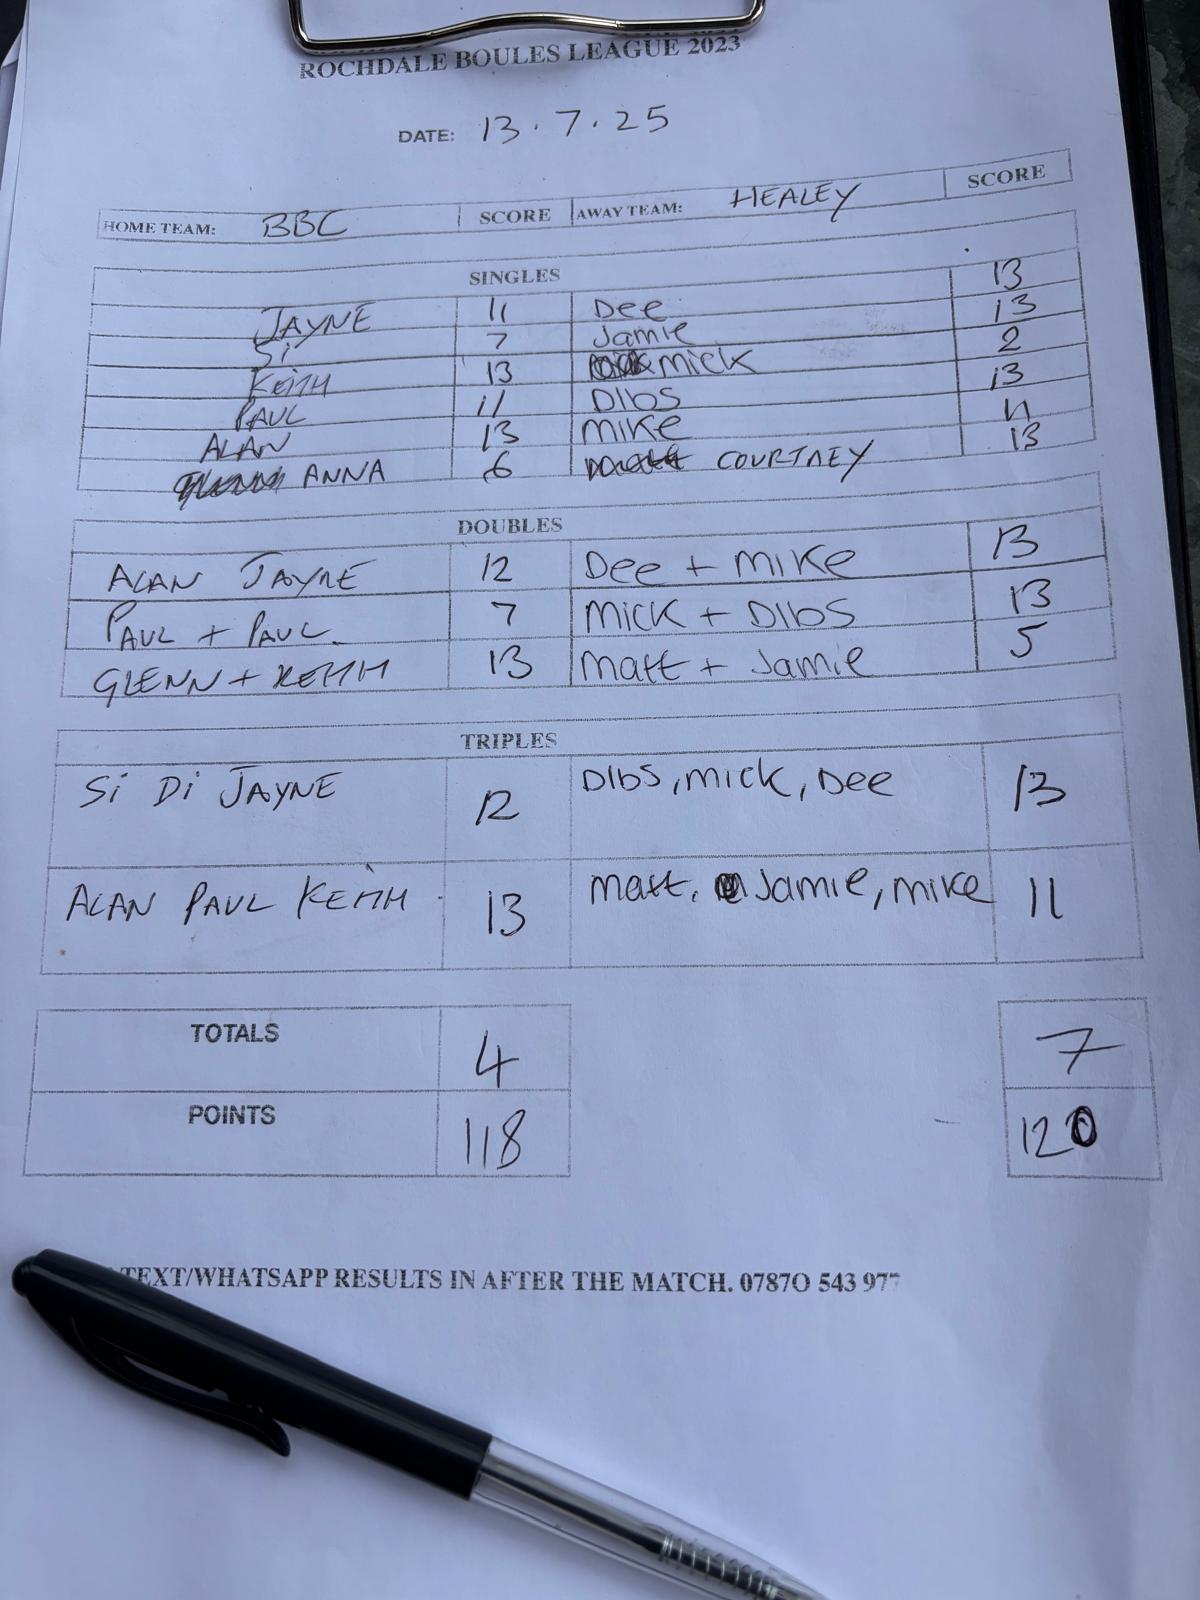 ROCHDALE BOULES LEAGUE 2023
DATE: 13.7.25
HOME TEAM: BBC SCORE AWAY TEAM: HEALEY SCORE
SINGLES
JAYNE 11 Dee 13
Si 7 Jamie 13
KEITH 13 Mick 2
PAUL 11 DIbS 13
ALAN 13 MIKE 11
ANNA 6 COURTNEY 13
DOUBLES
ALAN JAYNE 12 Dee + MIKE 13
PAUL + PAUL 7 MICK + DIbS 13
GLENN + KEITH 13 Matt + Jamie 5
TRIPLES
Si Di JAYNE 12 DIbS, MICK, Dee 13
ALAN PAUL KEITH 13 Matt, Jamie, MIKE 11
TOTALS 4 7
POINTS 118 120
TEXT/WHATSAPP RESULTS IN AFTER THE MATCH. 0787O 543 977